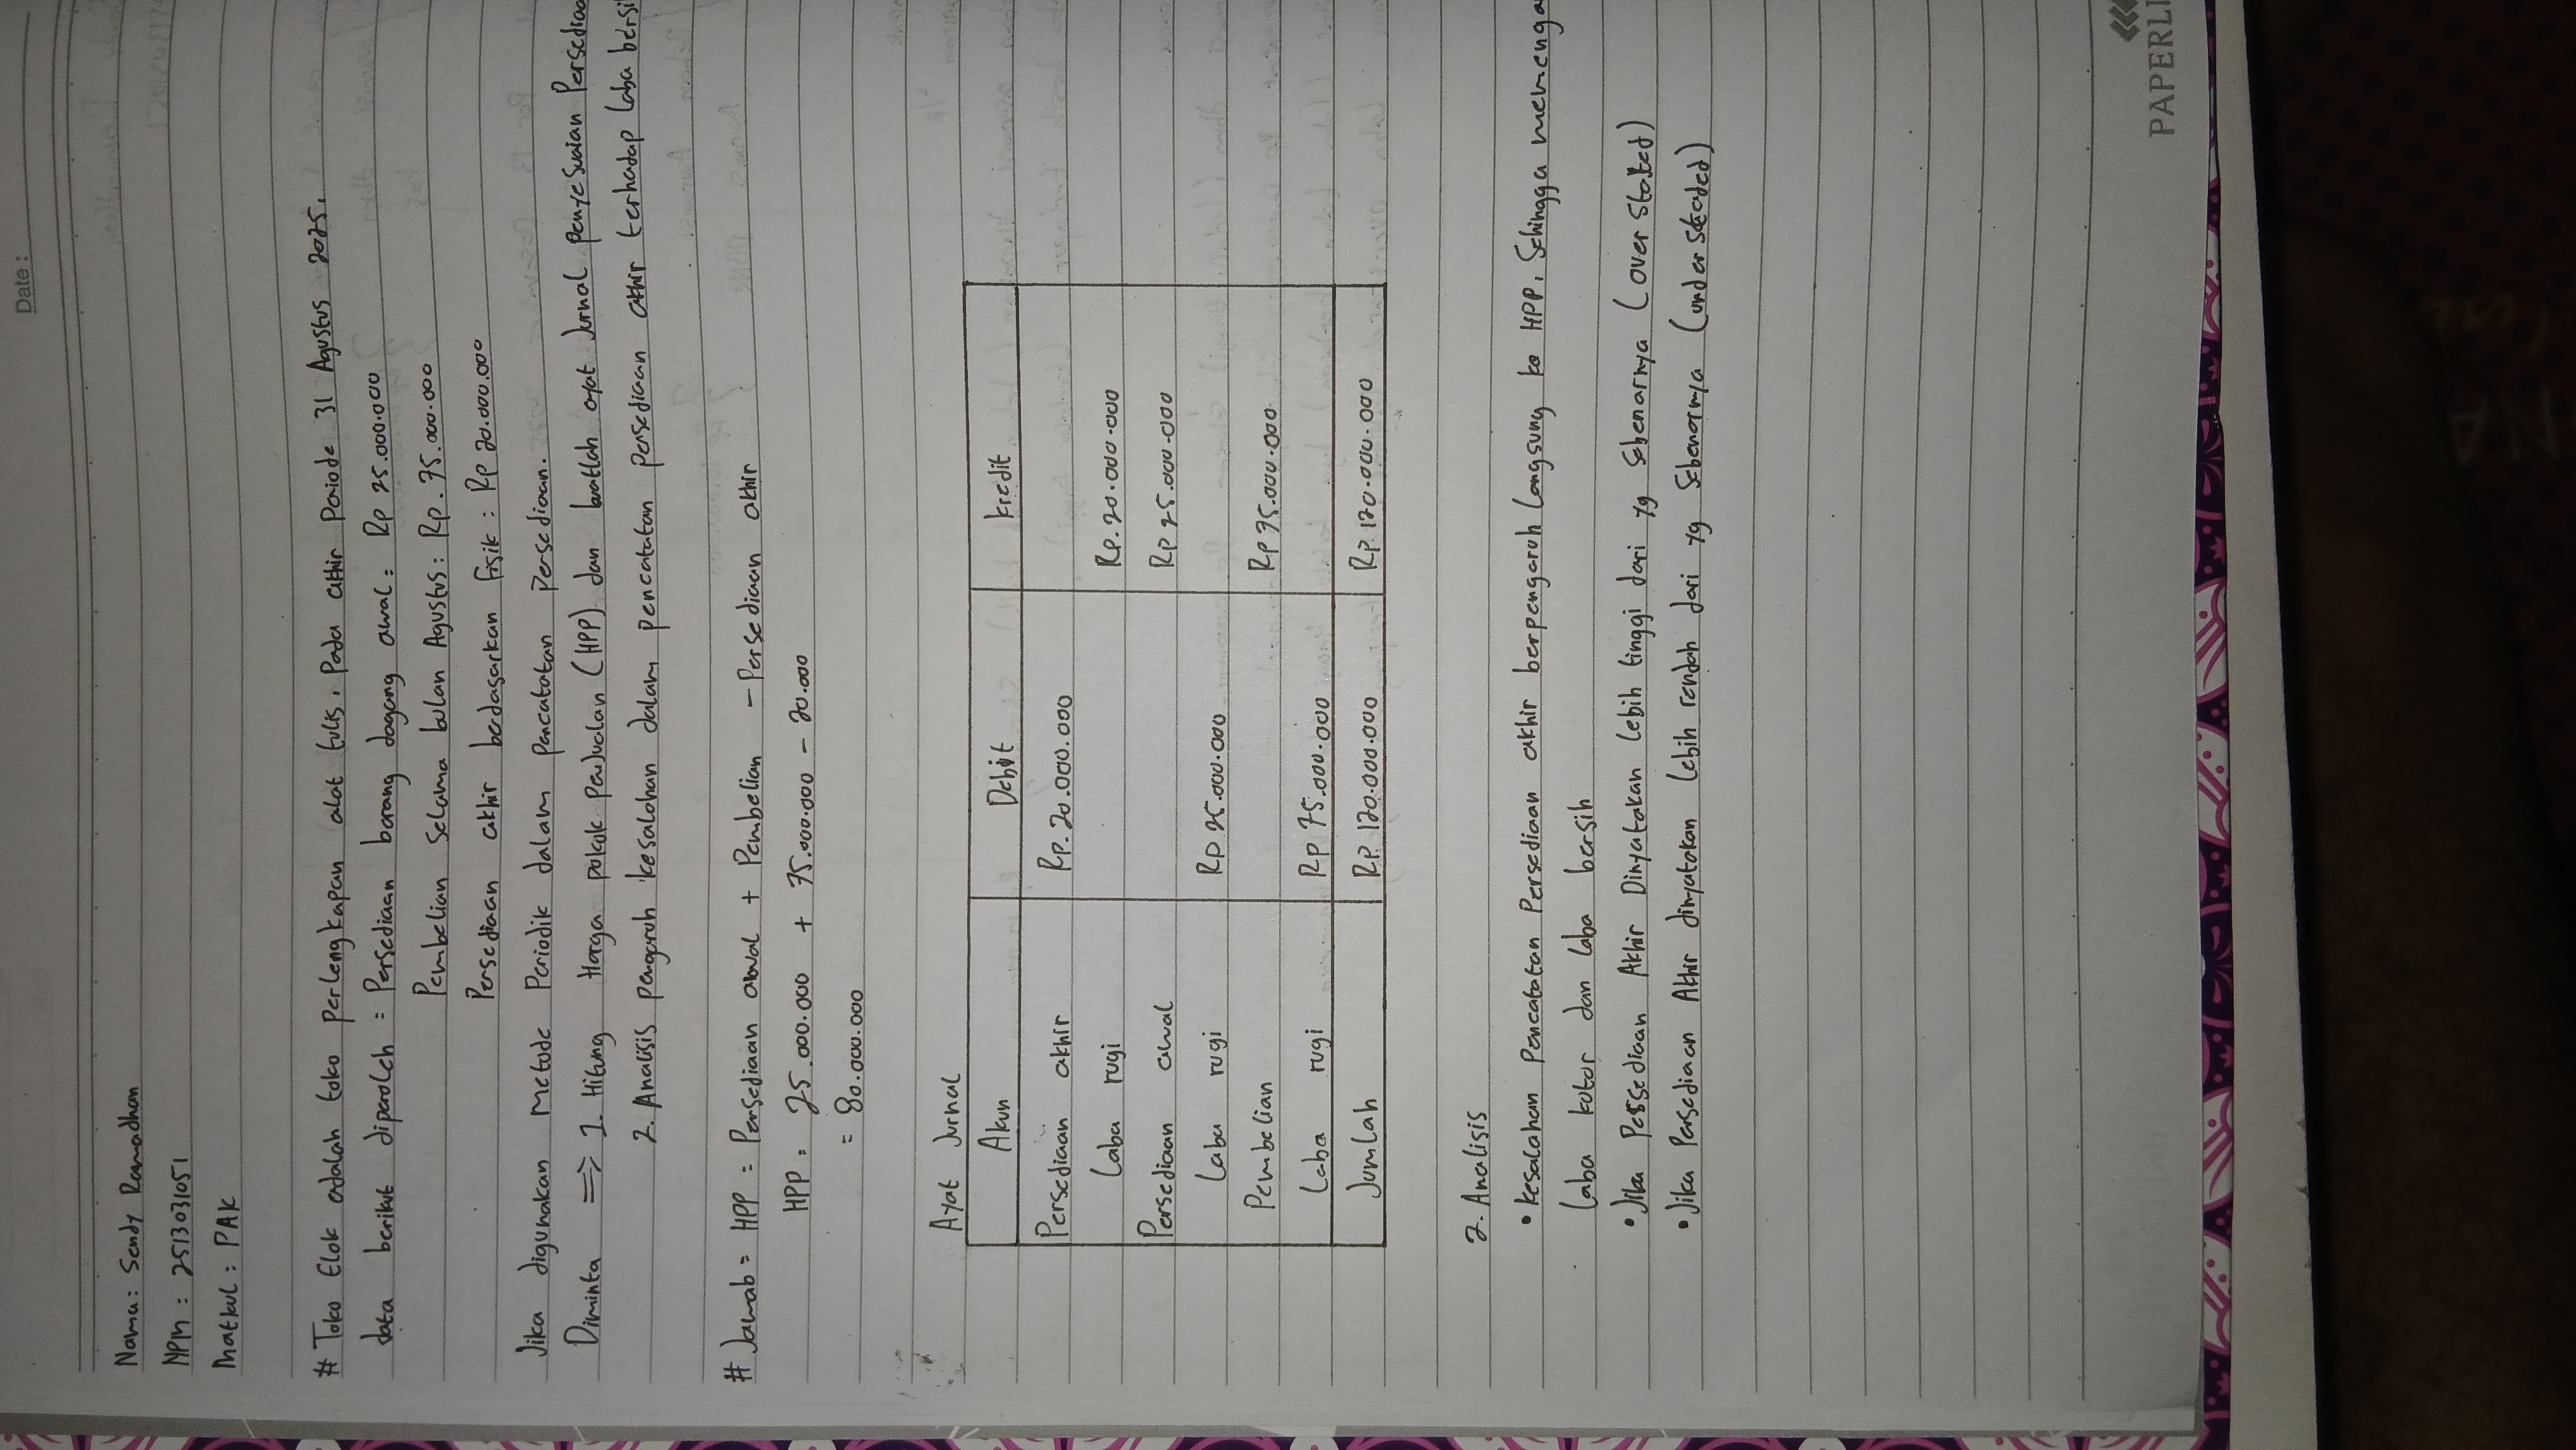 Date:
Nama: Sendy Ramadhan
NPM : 2513031051
Matkul : PAK
# Toko Elok adalah toko perlengkapan alat tulis. Pada akhir Periode 31 Agustus 2025.
data berikut diperoleh = Persediaan barang dagang awal : Rp 25.000.000
Pembelian Selama bulan Agustus : Rp. 75.000.000
Persediaan akhir berdasarkan fisik : Rp 20.000.000
Jika digunakan Metode Periodik dalam pencatatan persediaan.
Diminta ⇒ 1. Hitung Harga pokok penjualan (HPP) dan buatlah ayat Jurnal penyesuaian Persediaa
2. Analisis pengaruh kesalahan dalam pencatatan persediaan akhir terhadap laba bersi
# Jawab = HPP = Persediaan awal + Pembelian - Persediaan akhir
HPP = 25.000.000 + 75.000.000 - 20.000
= 80.000.000
Ayat Jurnal
Akun Debit kredit
Persediaan akhir Rp. 20.000.000
Laba rugi Rp. 20.000.000
Persediaan awal Rp 25.000.000
Laba rugi Rp 25.000.000
Pembelian Rp 75.000.000
Laba rugi Rp 75.000.000
Jumlah Rp. 120.000.000 Rp. 120.000.000
2. Analisis
• Kesalahan Pencatatan Persediaan akhir berpengaruh Langsung ke HPP, Sehingga memenga
Laba kotor dan laba bersih
• Jika Persediaan Akhir Dinyatakan Lebih tinggi dari yg Sebenarnya (over stated)
• Jika Persediaan Akhir dinyatakan Lebih rendah dari yg Sebenarnya (under stated)
PAPERLI